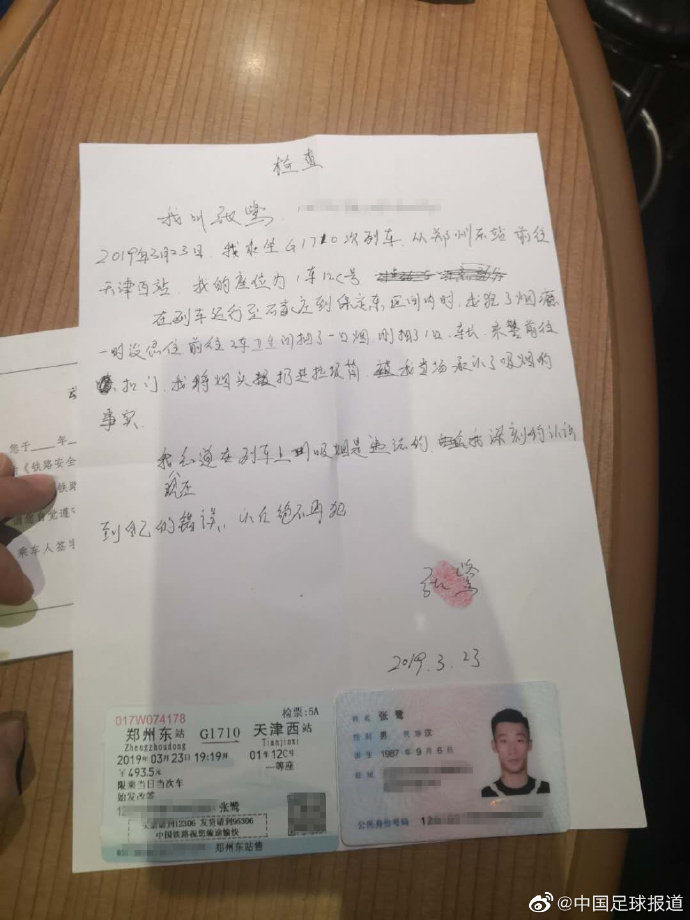 检查
我叫张鹭,
2019年3月23日,我乘坐G1710次列车,从郑州东站前往
天津西站,我的座位为1车12C号
在列车运行至石家庄到保定东区间内时,我犯了烟瘾
一时没忍住前往2车卫生间抽了一口烟,刚抽了1口,车长、乘警前往
扣门,我将烟头扔进垃圾筒,我当场承认了吸烟的
事实
我知道在列车上吸烟是违法的,我深刻的认识
到自己的错误,以后绝不再犯
张鹭
2019.3.23
您于 年
《铁路安全
铁路
自觉遵
乘车人签字
017W074178
检票:5A
郑州东站 G1710 天津西站
Zhengzhoudong Tianjinxi
2019年03月23日 19:19开 01车12C号
¥493.5元 一等座
限乘当日当次车
始发改签
张鹭
买票请到12306 发货请到95306
中国铁路祝您旅途愉快
郑州东站售
姓名 张鹭
性别 男 民族 汉
出生 1987年9月6日
住址
公民身份号码 12
@中国足球报道